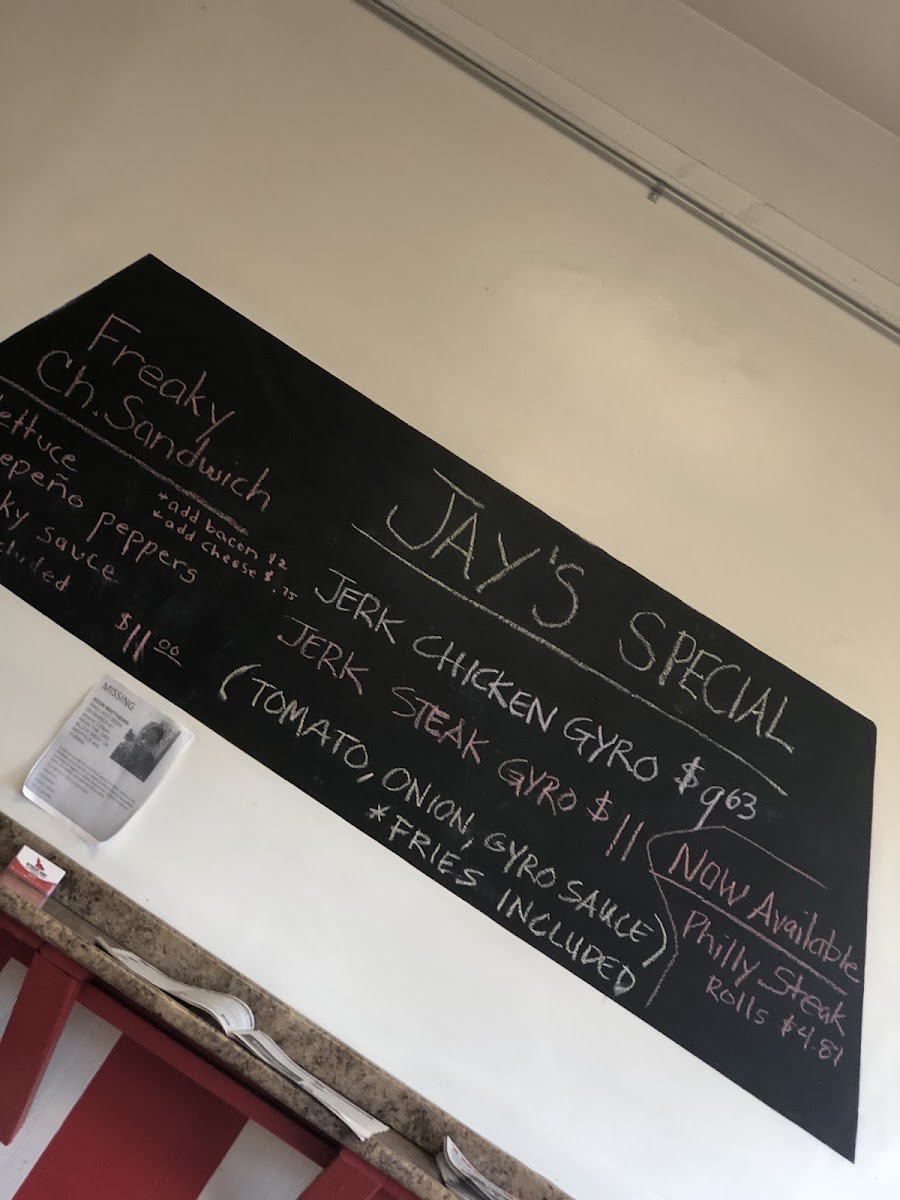 Freaky
Ch. Sandwich
lettuce
*add bacon $2
*add cheese $.75
peppers
sauce
$11.00
JAY'S SPECIAL
JERK CHICKEN GYRO $9.63
JERK STEAK GYRO $11
(TOMATO, ONION, GYRO SAUCE)
*FRIES INCLUDED
Now Available
Philly Steak
Rolls $4.81
MISSING